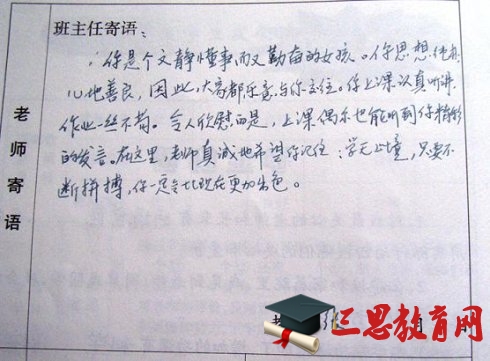 班主任寄语：
你是个文静懂事而又勤奋的女孩。你思想纯朴
心地善良，因此，大家都乐意与你交往。你上课认真听讲
作业一丝不苟。令人欣慰的是，上课偶尔也能听到你精彩
的发言。在这里，老师真诚地希望你记住：学无止境，只要不
断拼搏，你一定会比现在更加出色。
老师寄语
三思教育网